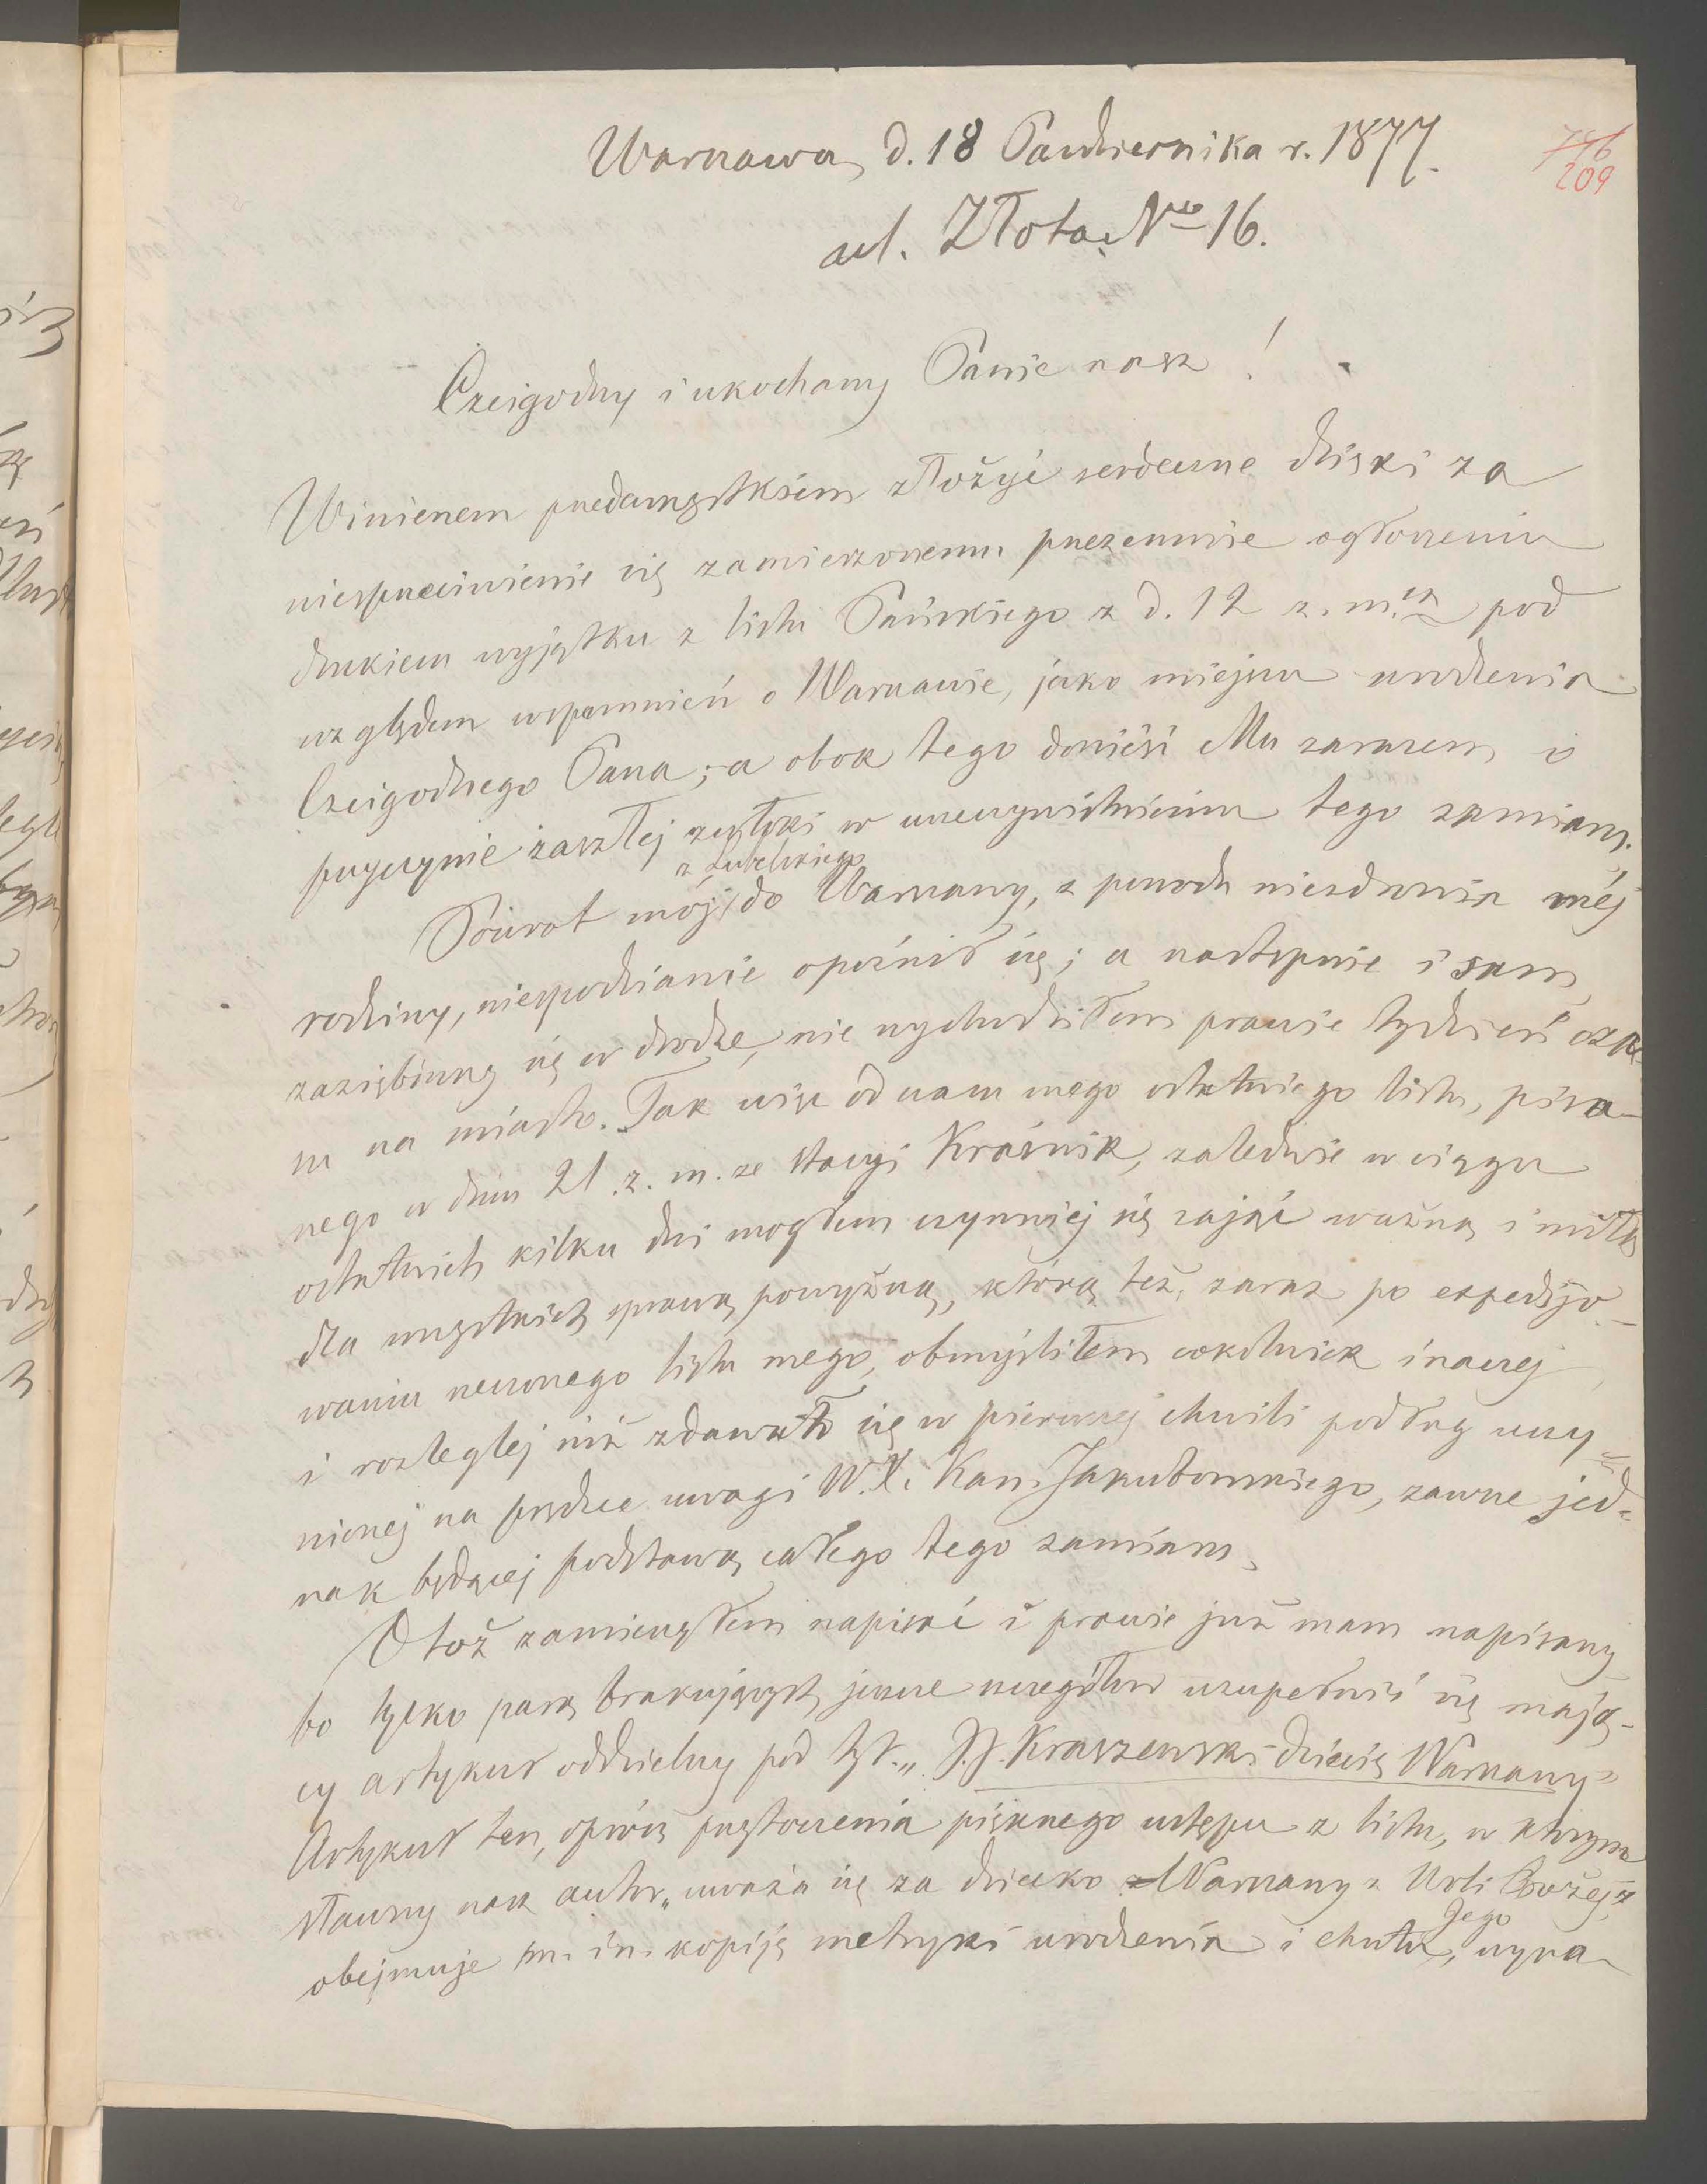 Warszawa, d. 18 Października r. 1877.
746
209
ul. Złota, Nro 16.
Czcigodny i ukochany Panie nasz!
Winienem przedewszystkiem złożyć serdeczne dzięki za
niesprzeciwienie się zamierzonemu przezemnie ogłoszeniu
drukiem wyjątku z listu Pańskiego z d. 12 z. m. pod
względem wspomnień o Warszawie, jako miejscu urodzenia
Czcigodnego Pana; a obok tego donieść Mu zarazem i o
przyczynie zaszłej zwłoki w urzeczywistnieniu tego zamiaru.
z Lubelskiego
Powrót mój do Warszawy, z powodu niezdrowia mej
rodziny, niespodzianie opóźnił się; a następnie i sam,
zaziębiwszy się w drodze, nie wychodziłem prawie tydzień cza-
su na miasto. Tak więc od czasu mego ostatniego listu, pisa-
nego w dniu 21 z. m. ze stacyi Kraśnik, zaledwie w ciągu
ostatnich kilku dni mogłem czynniej się zająć ważną i miłą
dla wszystkich sprawą powyższą, którą też, zaraz po expedyjo-
waniu rzeczonego listu mego, obmyśliłem cokolwiek inaczej
i rozleglej niż zdawało się w pierwszej chwili podług uczy-
nionej na prędce uwagi W. X. Kan. Jakubowskiego, zawsze jed-
nak będącej podstawą całego tego zamiaru.
Otoż zamierzyłem napisać i prawie już mam napisany
bo tylko parą brakujących jeszcze szczegółów uzupełnić się mają-
cy artykuł oddzielny pod tyt. „J. I. Kraszewski dziecię Warszawy”
Artykuł ten, oprócz przytoczenia pięknego ustępu z listu, w którym
sławny nasz autor „uważa się za dziecko Warszawy z Woli Bożej”,
Jego
obejmuje m. in. kopiję metryki urodzenia i chrztu, wyra-